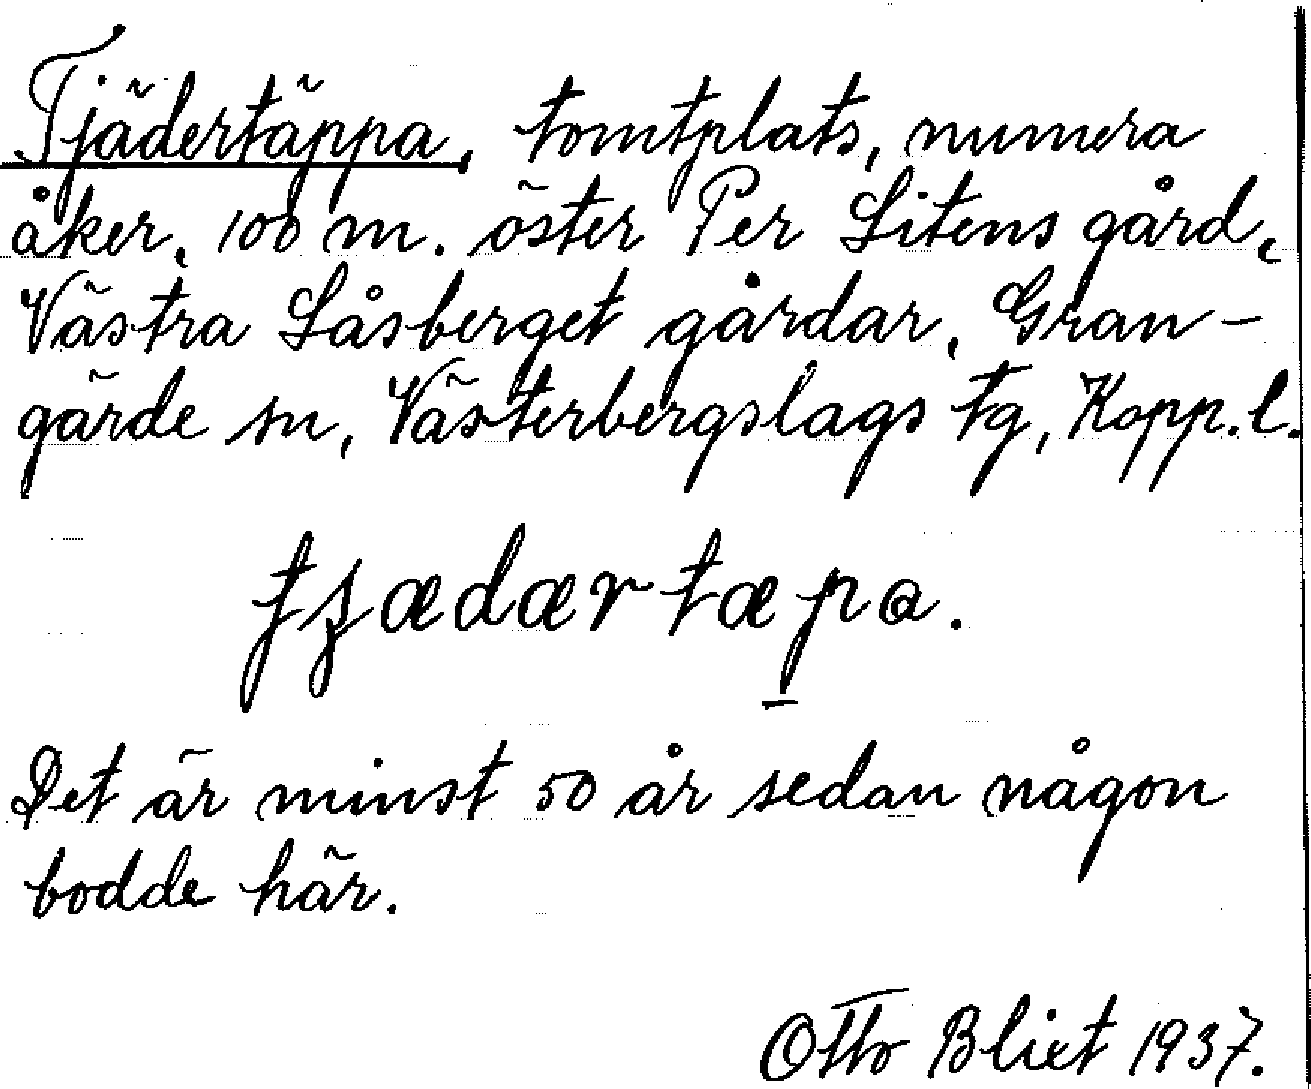 Tjädertäppa, tomtplats, numera
åker, 100 m. öster Per Litens gård,
Västra Låsberget gårdar, Gran-
gärde sn, Västerbergslags tg, Kopp.l.
tʒædærtæpa.
Det är minst 50 år sedan någon
bodde här.
Otto Bliet 1937.